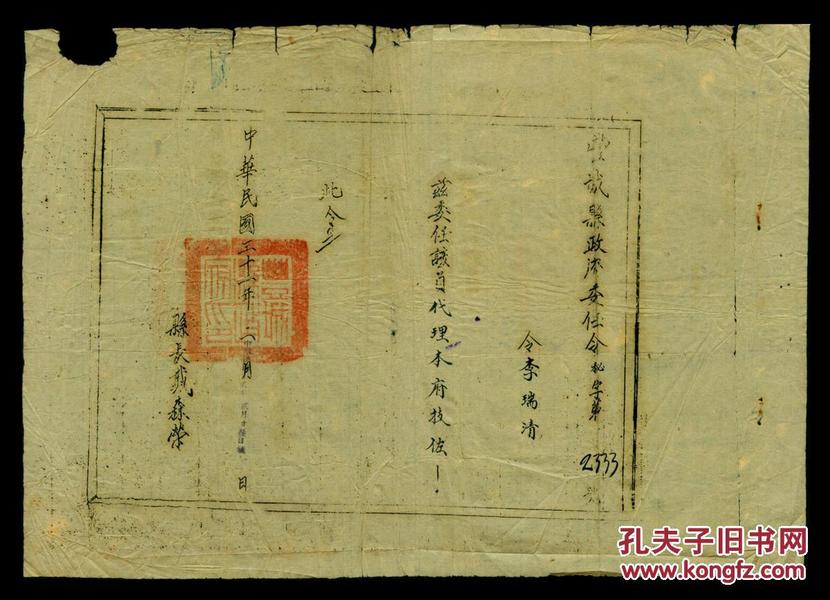 豐城縣政府委任令秘字第2333號
令李瑞清
茲委任該員代理本府技佐
此令
中華民國三十年二月日
縣長戴森榮
孔夫子旧书网
www.kongfz.com